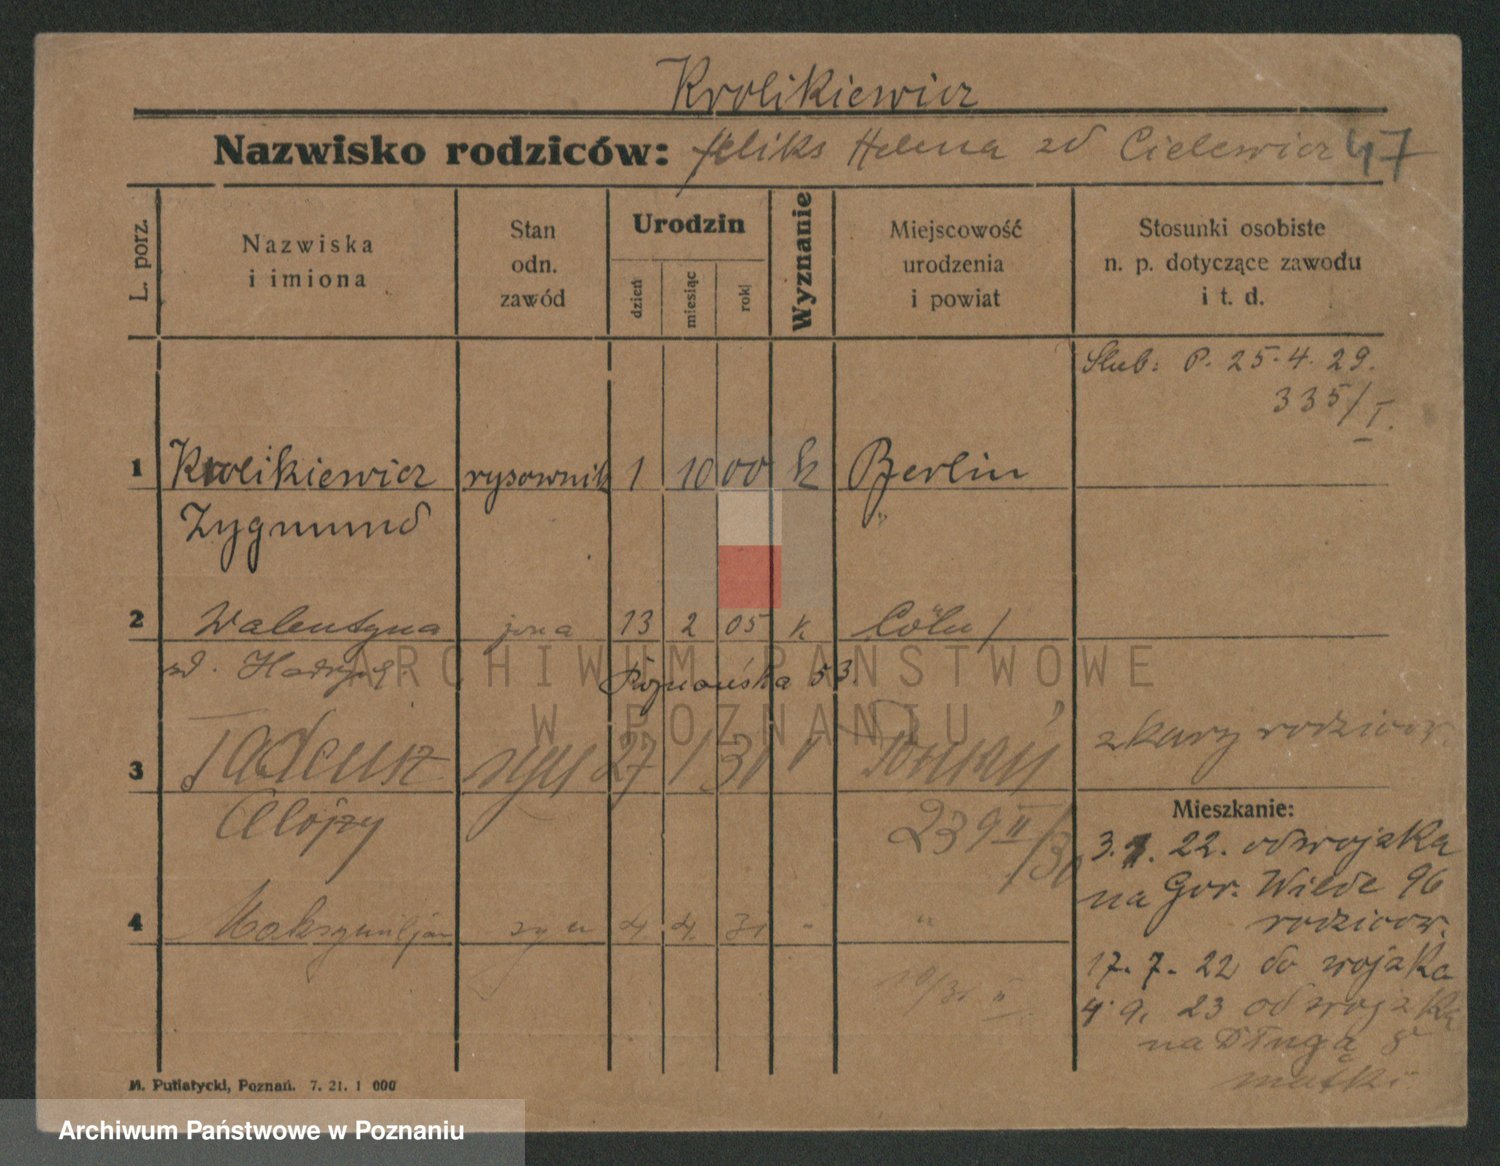 Krolikiewicz
Nazwisko rodziców: Feliks Helena zd Cielewicz 47
L. porz.
Nazwiska
i imiona
Stan
odn.
zawód
Urodzin
dzień
miesiąc
rok
Wyznanie
Miejscowość
urodzenia
i powiat
Stosunki osobiste
n. p. dotyczące zawodu
i t. d.
Slub: P. 25.4.29.
335/I.
1 Krolikiewicz rysownik 1 10 00 k Berlin
Zygmund "
2 Walentyna żona 13 2 05 k. Cöln
zd. Poznańska 53.
3 Tadeusz syn 27 1 30 Poznań
Alojzy 239 II/30
z kary rodzicow.
Mieszkanie:
3. 22. od wojaka
na Gor. Wilde 96
rodzicow.
4 Maksymiljan syn 4 4. 31 - "
17. 7. 22 do wojaka
4. 9. 23 od wojaka
na Długą 8
matki.
M. Putiatycki, Poznań. 7. 21. 1 000
ARCHIWUM PAŃSTWOWE
W POZNANIU
Archiwum Państwowe w Poznaniu